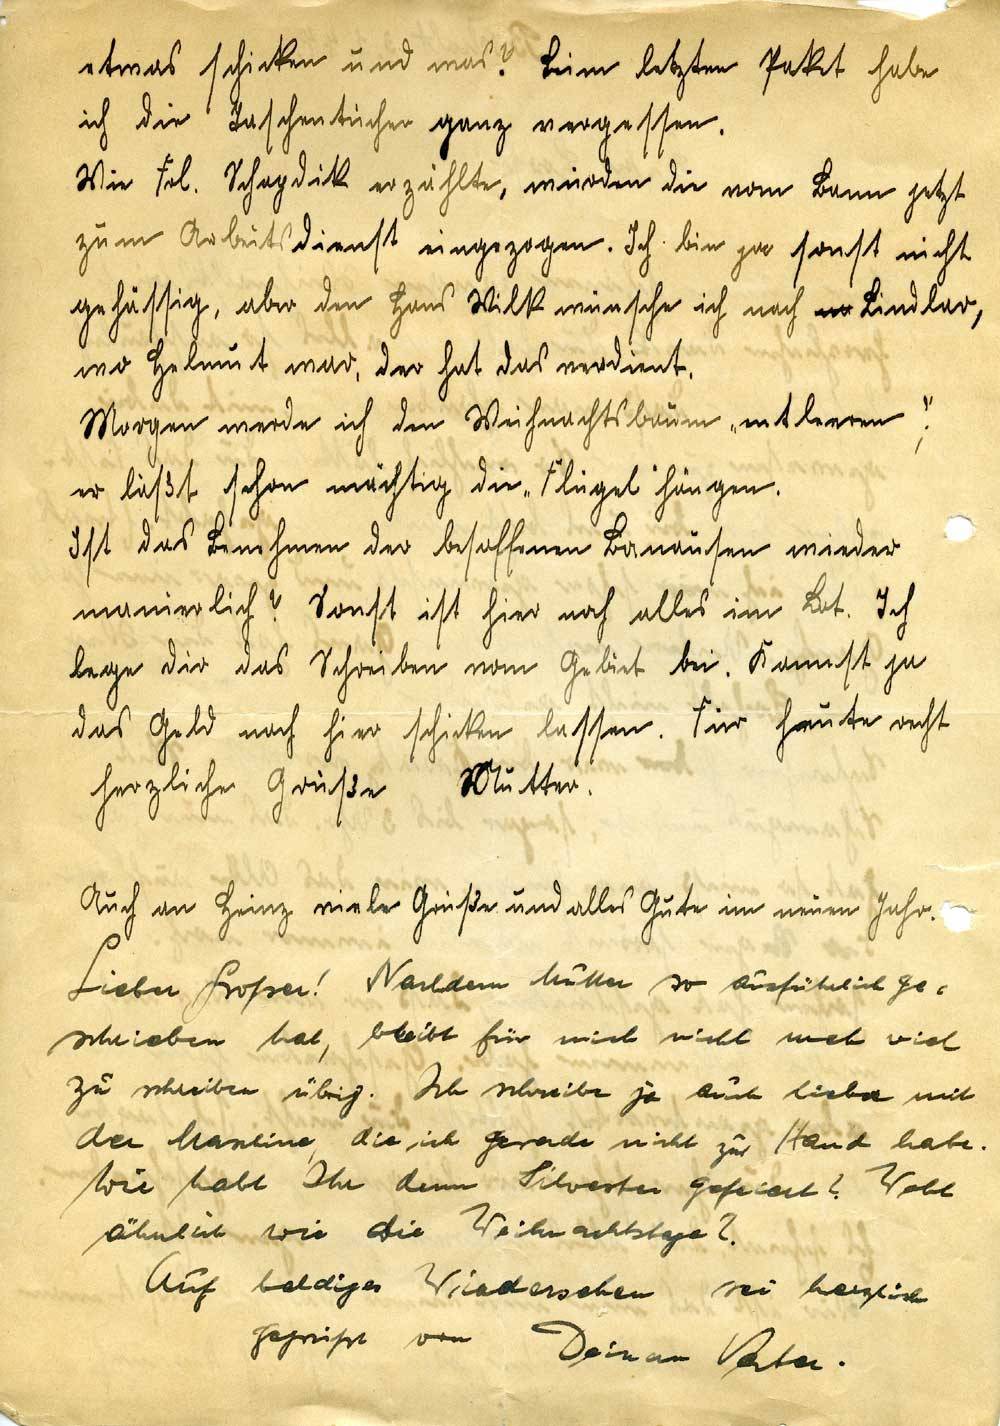 etwas schicken und was? Beim letzten Paket habe
ich die Taschentücher ganz vergessen.
Wie Frl. Schapdik erzählte, würden die vom Bann jetzt
zum Arbeitsdienst eingezogen. Ich bin ja sonst nicht
gehässig, aber den Hans Wilk wünsche ich nach Lindlar,
wo Helmut war, der hat das verdient.
Morgen werde ich den Weihnachtsbaum „entleeren“,
er läßt schon mächtig die „Flügel“ hängen.
Ist das Benehmen der besoffenen Banausen wieder
manierlich? Sonst ist hier noch alles im Lot. Ich
lege dir das Schreiben vom Gebiet bei. Kannst ja
das Geld nach hier schicken lassen. Für heute recht
herzliche Grüße Mutter.
Auch an Heinz viele Grüße und alles Gute im neuen Jahr.
Lieber Großer! Nachdem Mutter so ausführlich ge-
schrieben hat, bleibt für mich nicht mehr viel
zu schreiben übrig. Ich schreibe ja auch lieber mit
der Maschine, die ich gerade nicht zur Hand habe.
Wie habt Ihr denn Silvester gefeiert? Wohl
ähnlich wie die Weihnachtstage?
Auf baldiges Wiedersehen sei herzlich
gegrüßt von Deinem Vater.